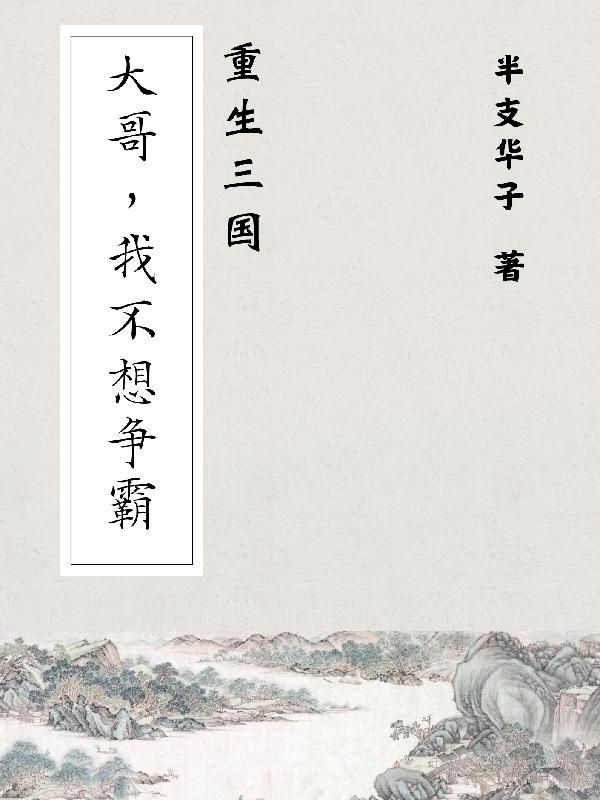 半支华子 著
重生三国
大哥，我不想争霸